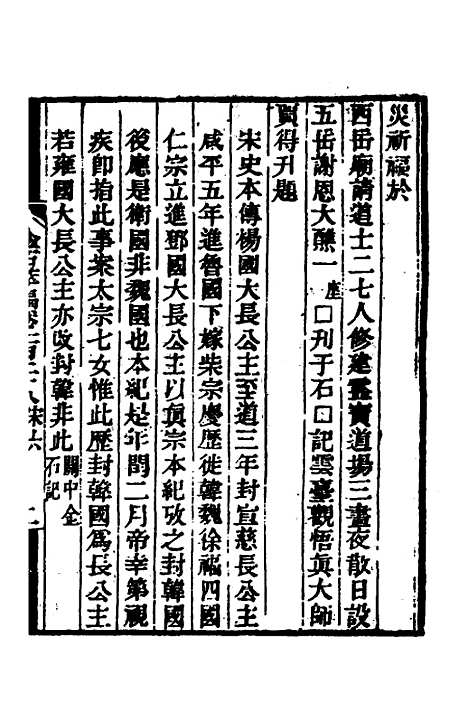 災祈福於
西岳廟請道士二七人修建靈寶道場三晝夜散日設
五岳謝恩大醮一座囗刊于石囗記雲臺觀悟眞大師
貟得升題
宋史本傳楊國大長公主至道三年封宣慈長公主
咸平五年進魯國下嫁柴宗慶歷徙韓魏徐福四國
仁宗立進鄧國大長公主以眞宗本紀攷之封韓國
後應是衛國非魏國也本紀是年閏二月帝幸第視
疾卽指此事案太宗七女惟此歷封韓國爲長公主
若雍國大長公主亦改封韓非此關中金石記
金石萃編卷一百二十八宋六 二